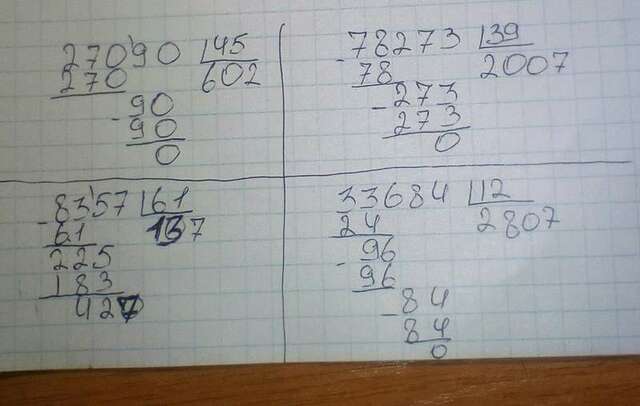 27090 45
270 602
- 90
90
0
- 78273 39
78 2007
- 273
273
0
- 8357 61
61 137
225
183
427
33684 12
24 2807
- 96
96
- 84
84
0